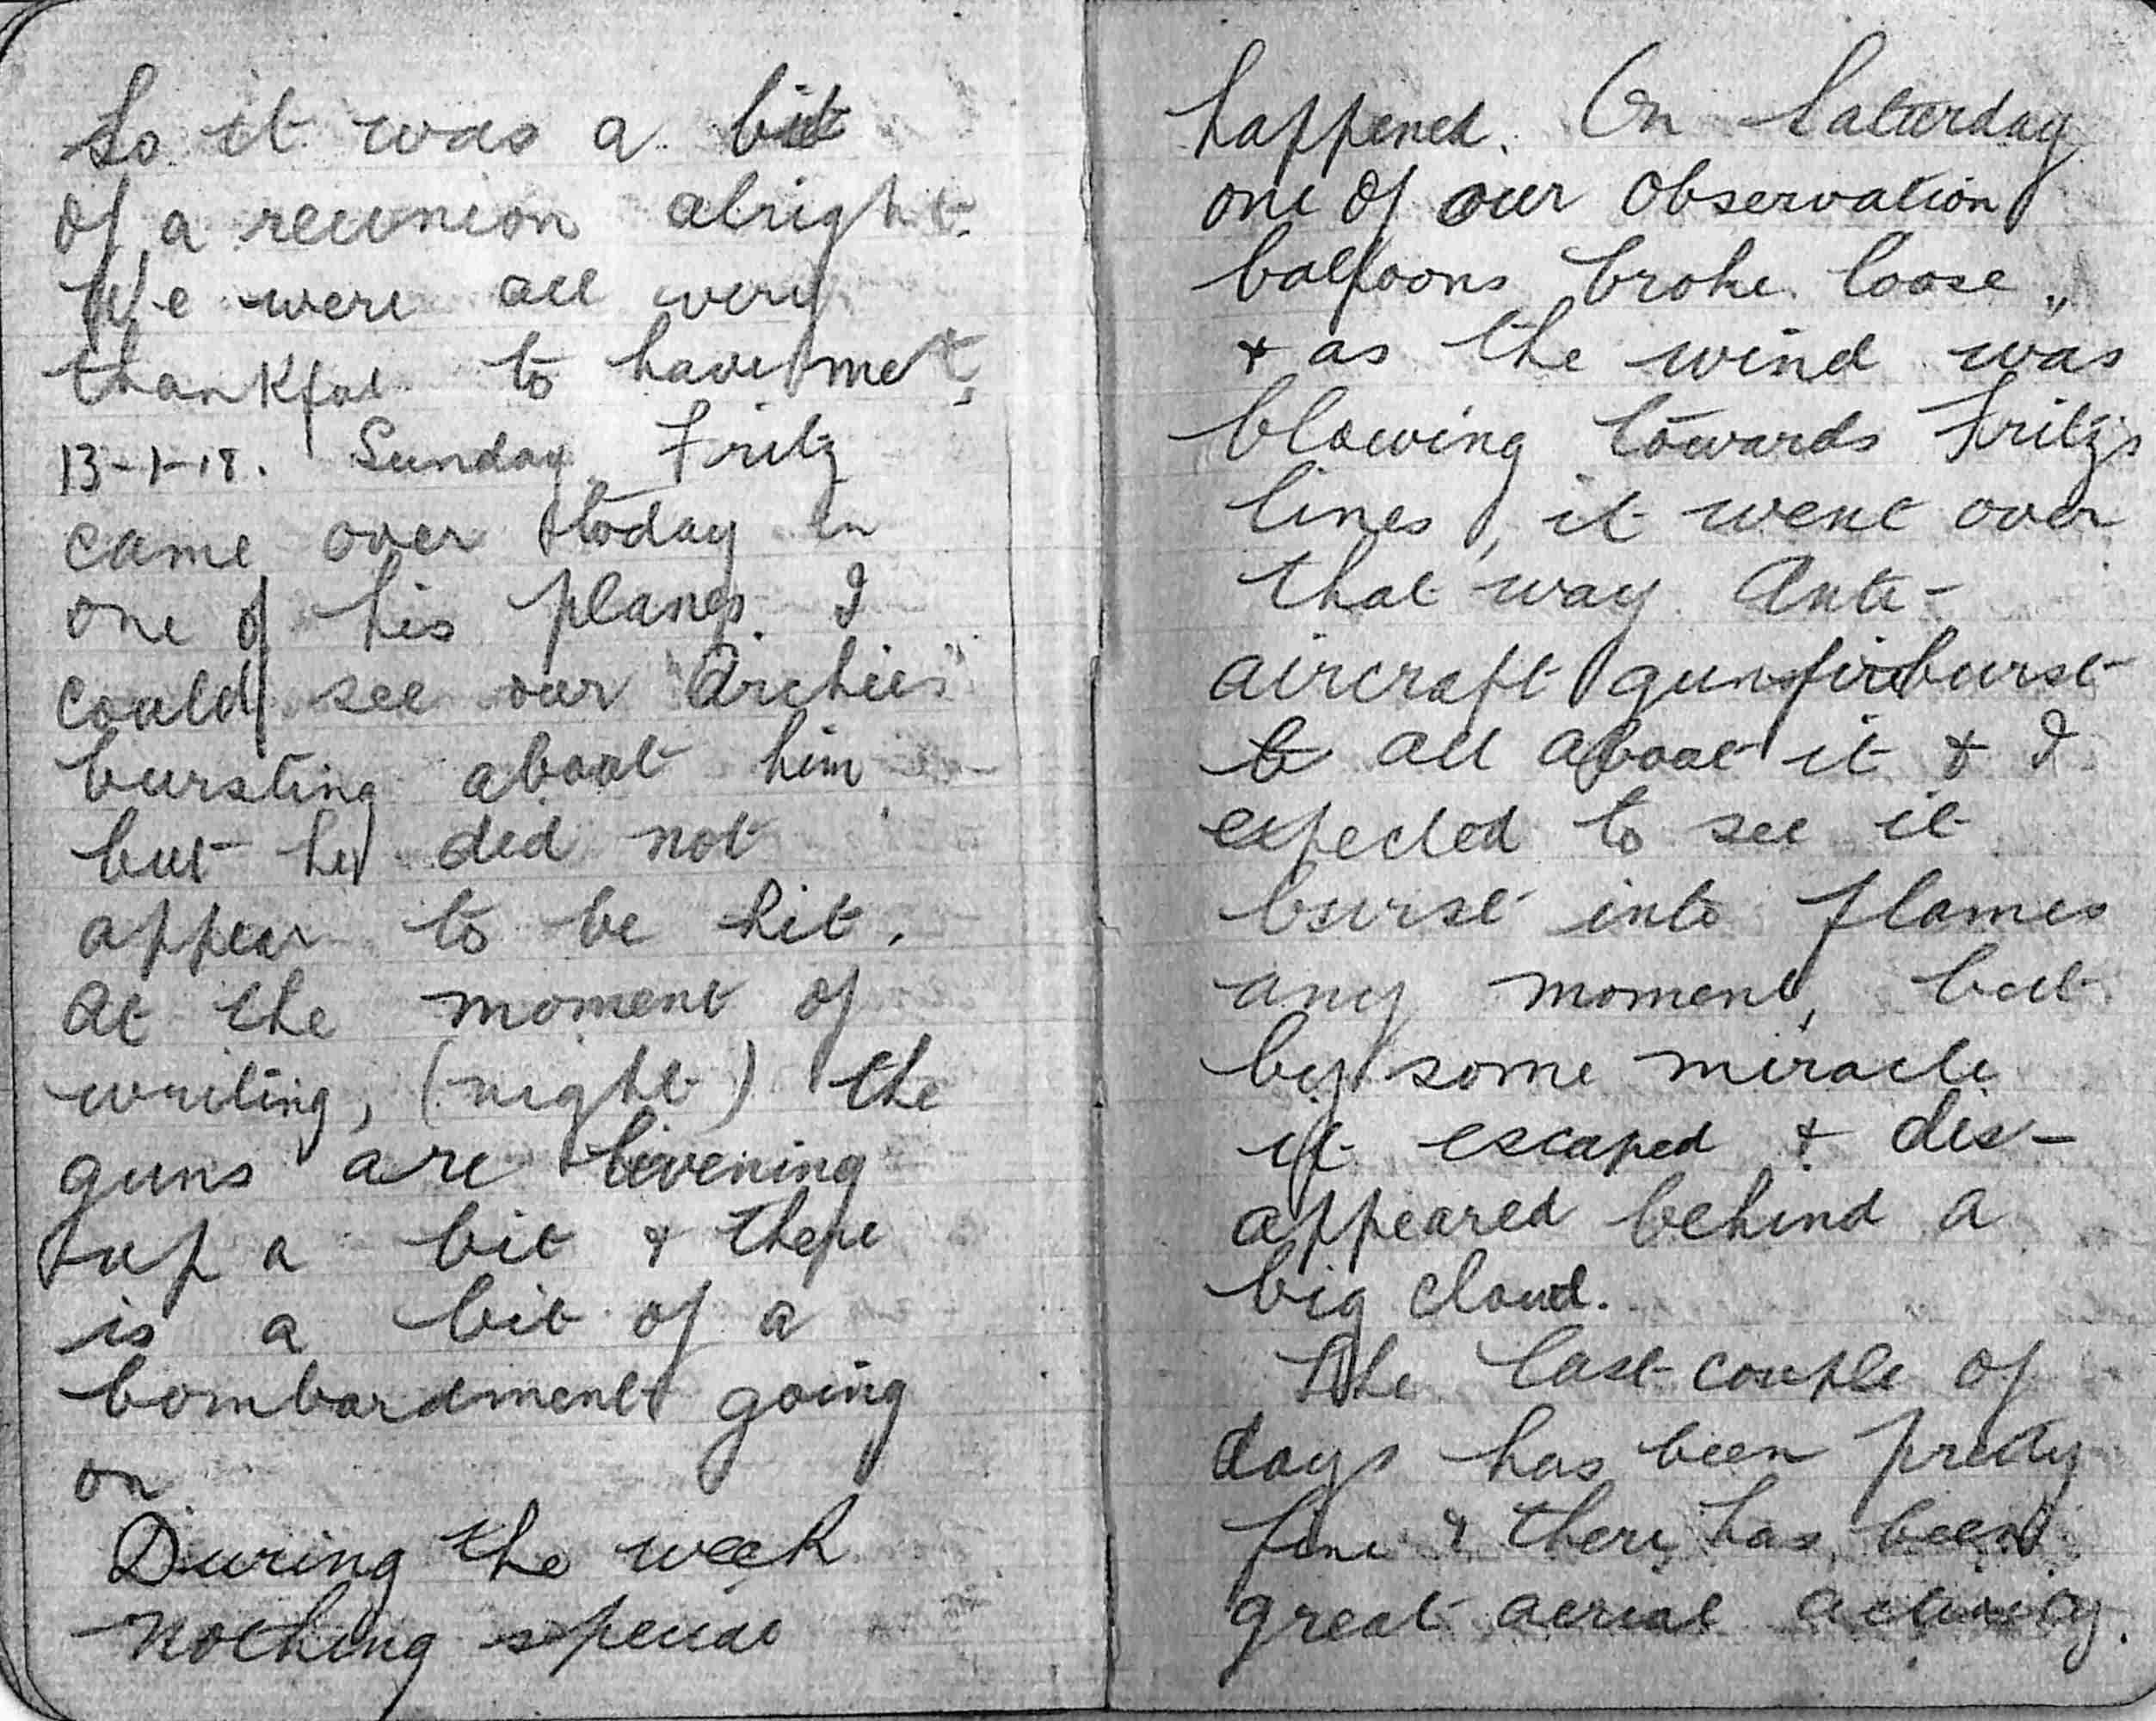 So it was a bit
of a reunion alright.
We were all very
thankful to have met.
13-1-18. Sunday Fritz
came over today in
one of his planes. I
could see our "Archies"
bursting about him
but he did not
appear to be hit.
At the moment of
writing, (night) the
guns are livening
up a bit & there
is a bit of a
bombardment going
on.
During the week
nothing special
happened. On Saturday
one of our observation
balloons broke loose,
& as the wind was
blowing towards Fritz's
lines, it went over
that way. Anti-
aircraft guns burst
all about it & I
expected to see it
burst into flames
any moment, but
by some miracle
it escaped & dis-
appeared behind a
big cloud.
The last couple of
days has been pretty
fine & there has been
great aerial activity.